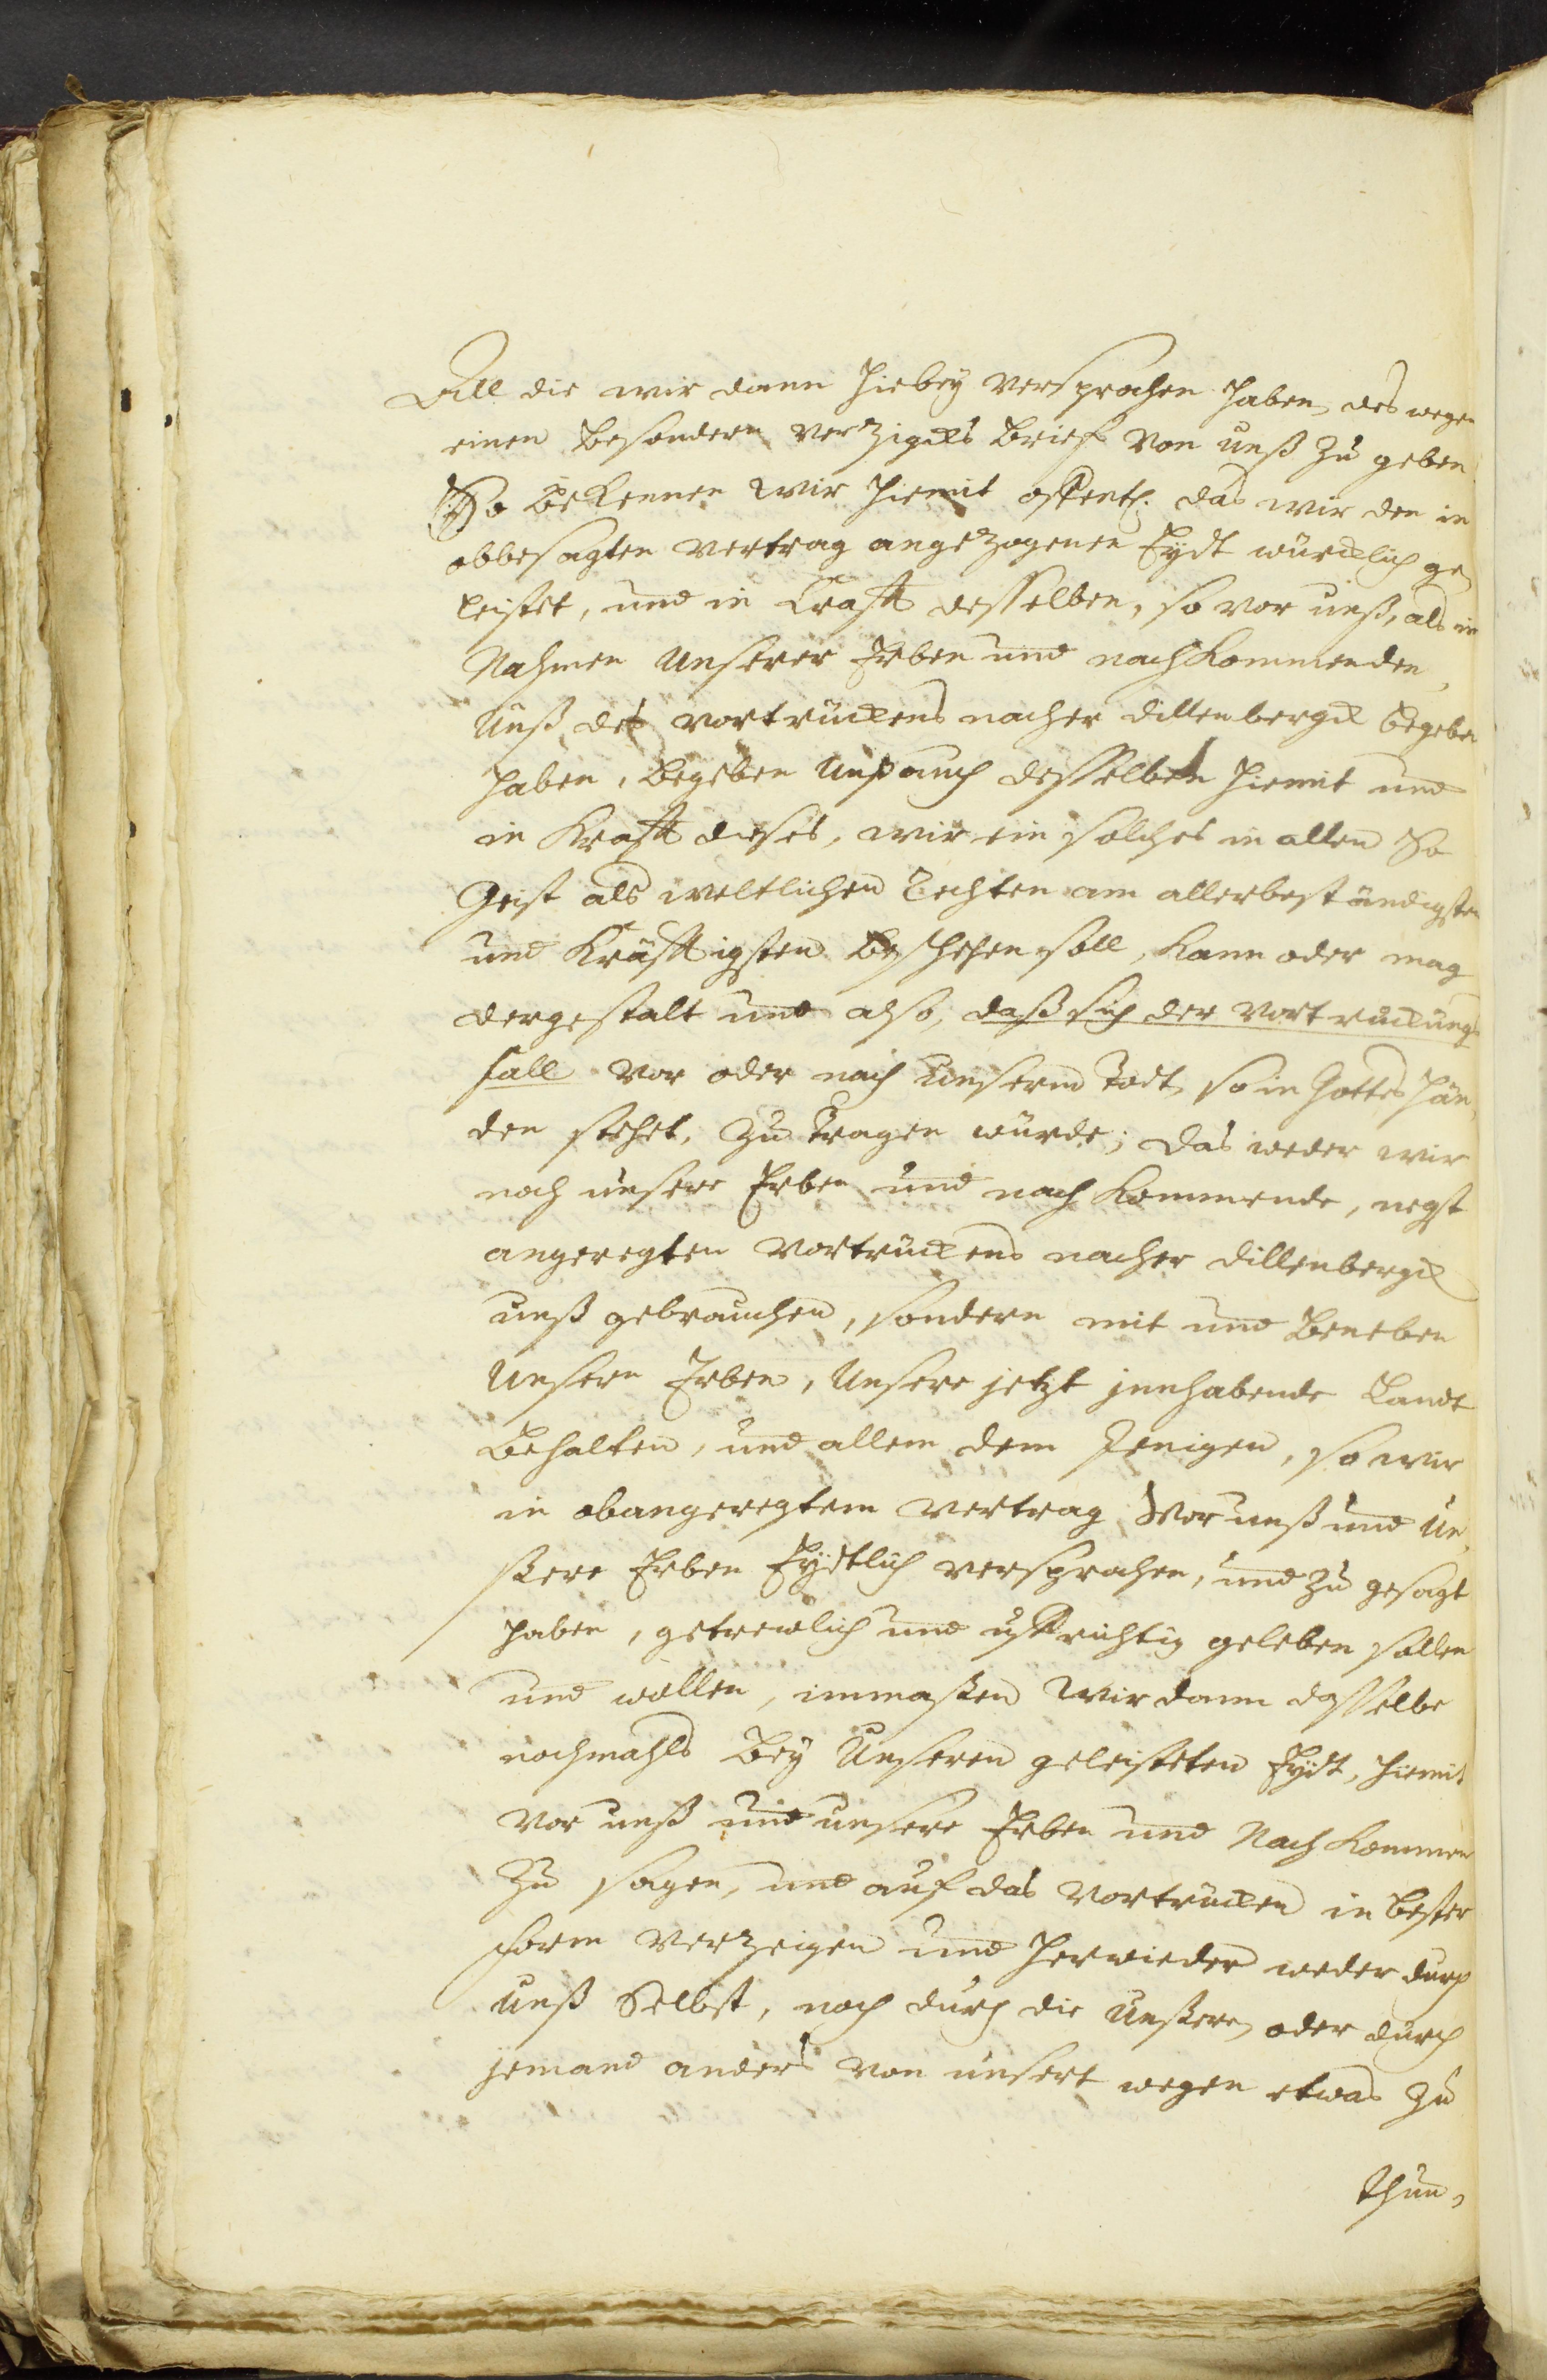 All die wir dann hiebey versprochen haben, deswegen
einen besondern verzigcks brief von unß zu geben
So bekennen wir hiemit offentl. das wir den in
obbesagten vertrag angezogenen Eydt würcklich ge,
leistet, und in krafft desselben, so vor unß, als in
Nahmen unserer Erben und nachkommenden,
unß des vortrückens nacher dillenbergck begeben
haben, begeben unß auch desselben hiemit und
in krafft dieses, wie ein solches in allen so
Geist als weltlichen Rechten am allerbeständigsten
und kräfftigsten beschehen soll, kann oder mag
dergestalt und also, daß sich der vortruckungs
fall vor oder nach unserm Todt, so in Gottes Hän,
den stehet, zu tragen würde; das weder wir
noch unsere Erben und nachkommende, negst
angeregten vortrückens nacher dillenbergck
unß gebrauchen, sondern mit und beneben
unsern Erben, unsere jetzt jnnhabende Landt
behalten, und allem dem jenigen, so wir
in obangeregtem vertrag vor unß und un,
ßere Erben Eydtlich versprochen, und zu gesagt
haben, getrewlich und uffrichtig geleben sollen
und wollen, inmaßen wir dann dasselbe
nochmahls bey unseren geleisteten Eydt, hiemit
vor unß und unsere Erben und Nachkommen
zu sagen, und auf das vortrucken in bester
form verzeigen und herwieder weder durch
unß selbst, noch durch die unßere, oder durch
jemand anders von unsert wegen etwas zu
thun,